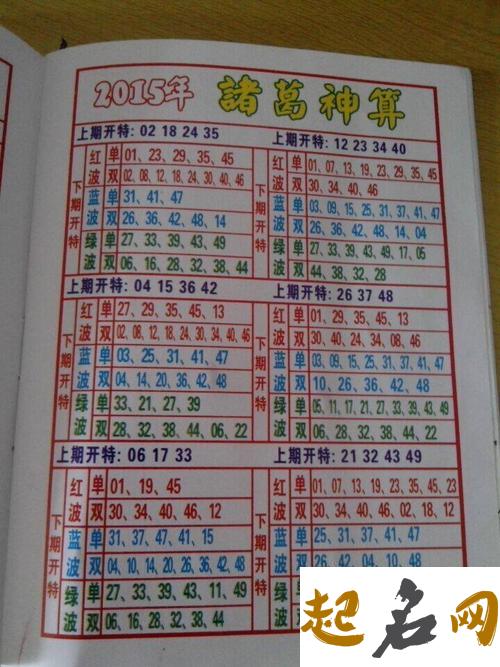 2015年 諸葛神算
上期开特: 02 18 24 35
下期开特
红波 单 01、23、29、35、45
双 02、08、12、18、24、30、40、46
蓝波 单 31、41、47
双 26、36、42、48、14
绿波 单 27、33、39、43、49
双 06、16、28、32、38、44
上期开特: 12 23 34 40
下期开特
红波 单 01、07、13、19、23、29、35、45
双 30、34、40、46
蓝波 单 03、09、15、25、31、37、41、47
双 26、36、42、48、14、04
绿波 单 27、33、39、43、49、17、05
双 44、38、32、28
上期开特: 04 15 36 42
下期开特
红波 单 27、29、35、45、13
双 02、08、12、18、24、30、34、40、46
蓝波 单 03、25、31、41、47
双 04、14、20、36、42、48
绿波 单 33、21、27、39
双 28、32、38、44、06、22
上期开特: 26 37 48
下期开特
红波 单 01、29、35、45、13
双 30、40、24、34、08、46
蓝波 单 03、09、15、25、31、37、41、47
双 10、26、36、42、48
绿波 单 05、11、17、21、27、33、39、43、49
双 06、28、32、38、44、22
上期开特: 06 17 33
下期开特
红波 单 01、19、45
双 30、34、40、46、12
蓝波 单 31、37、47、41、15
双 04、10、14、20、26、36、42、48
绿波 单 27、33、39、43、11、49
双 06、16、28、32、38、44
上期开特: 21 32 43 49
下期开特
红波 单 01、07、13、19、23、35、45、23
双 30、34、40、46、02、18、12
蓝波 单 25、31、37、41、47
双 26、42、04、10、48
起名网